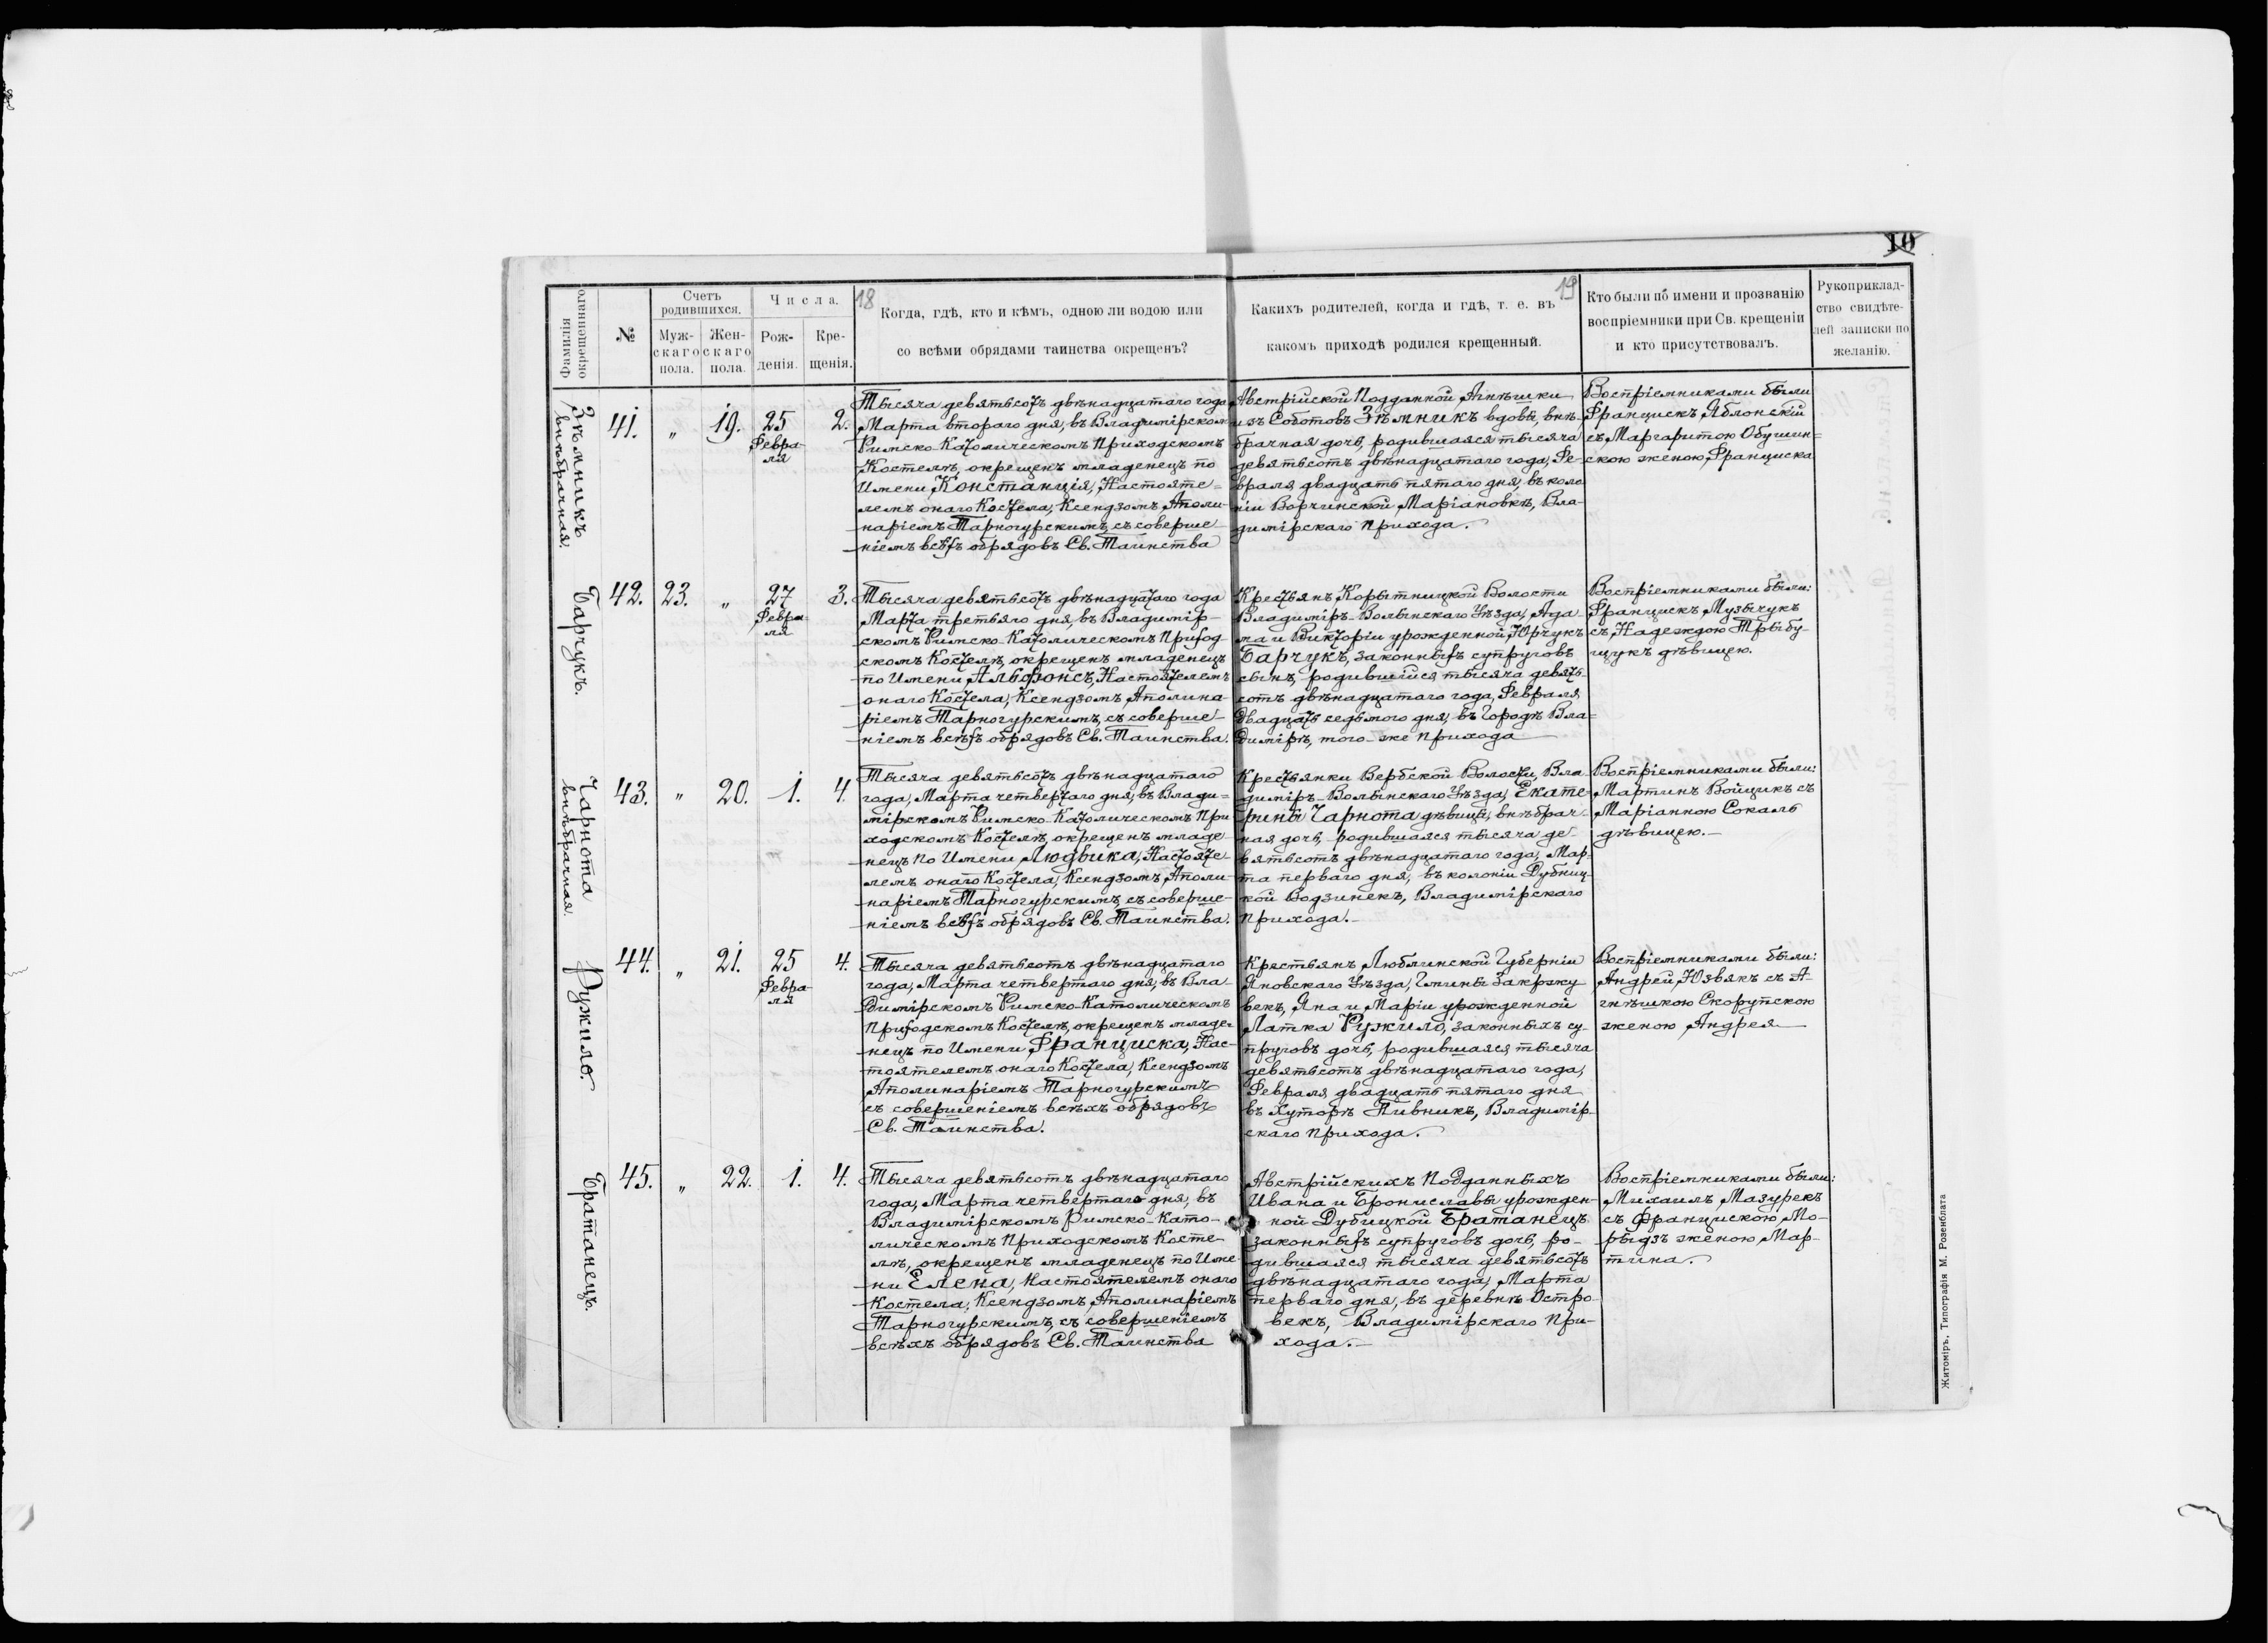 10
18
19
Фамилія окрещеннаго
№
Счетъ родившихся.
Муж-
скаго
пола.
Жен-
скаго
пола.
Числа.
Рож-
денія.
Кре-
щенія.
Когда, гдѣ, кто и кѣмъ, одною ли водою или
со всѣми обрядами таинства окрещенъ?
Какихъ родителей, когда и гдѣ, т. е. въ
какомъ приходѣ родился крещенный.
Кто были по имени и прозванію
воспріемники при Св. крещеніи
и кто присутствовалъ.
Рукоприклад-
ство свидѣте-
лей записки по
желанію.
Зѣмникъ
внѣбрачная.
41.
"
19.
25
Февра-
ля
2.
Тысяча девятьсотъ двѣнадцатаго года
Марта втораго дня, въ Владимірском
Римско-Католическомъ Приходскомъ
Костелѣ, окрещенъ младенецъ по
Имени Констанція, Настояте=
лемъ онаго Костела, Ксендзомъ Аполи-
наріемъ Тарногурскимъ, съ соверше-
ніемъ всѣхъ обрядовъ Св. Таинства
Австрійской Подданной Агнѣшки
изъ Соботовъ Зѣмникъ вдовы, внѣ-
брачная дочь, родившаяся тысяча
девятьсотъ двѣнадцатаго года, Фе-
враля двадцать пятаго дня, въ коло
ніи Ворчинской Маріановкѣ, Вла-
димірскаго прихода.
Воспріемниками были
Францискъ Яблонскій
съ Маргаритою Обушин=
скою женою Франциска
Барчукъ.
42.
23.
"
27
Февра-
ля
3.
Тысяча девятьсотъ двѣнадцатаго года
Марта третьяго дня, въ Владимір-
скомъ Римско-Католическомъ Приход
скомъ Костелѣ, окрещенъ младенецъ
по Имени Альфонсъ, Настоятелемъ
онаго Костела, Ксендзомъ Аполина-
ріемъ Тарногурскимъ, съ соверше-
ніемъ всѣхъ обрядовъ Св. Таинства.
Крестьянъ Корытницкой Волости
Владиміръ-Волынскаго Уѣзда, Ада
ма и Викторіи урожденной Юрчукъ
Барчукъ, законныхъ супруговъ
сынъ, родившійся тысяча девять-
сотъ двѣнадцатаго года, Февраля
двадцать седьмого дня, въ Городѣ Вла=
димірѣ, того-же прихода
Воспріемниками были:
Францискъ Музычукъ
съ Надеждою Трыбу-
щукъ дѣвицею.
Чарнота
внѣбрачная.
43.
"
20.
1.
4.
Тысяча девятьсотъ двѣнадцатаго
года, Марта четвертаго дня, въ Влади=
мірскомъ Римско-Католическомъ При
ходскомъ Костелѣ, окрещенъ младе
нецъ по Имени Людвика, Настояте-
лемъ онаго Костела, Ксендзомъ Аполи-
наріемъ Тарногурскимъ, съ соверше-
ніемъ всѣхъ обрядовъ Св. Таинства.
Крестьянки Вербской Волости, Вла
диміръ-Волынскаго Уѣзда, Екате-
рины Чарнота дѣвицы, внѣбрач-
ная дочь, родившаяся тысяча де
вятьсотъ двѣнадцатаго года, Мар-
та перваго дня, въ колоніи Дубниц-
кой Водзинекъ, Владимірскаго
прихода.-
Воспріемниками были:
Мартинъ Войцикъ съ
Маріанною Сокалъ
дѣвицею.-
Ружило.
44.
"
21.
25
Февра-
ля
4.
Тысяча девятьсотъ двѣнадцатаго
года, Марта четвертаго дня, въ Вла-
димірскомъ Римско-Католическомъ
Приходскомъ Костелѣ, окрещенъ младе-
нецъ по Имени Франциска, Нас-
тоятелемъ онаго Костела, Ксендзомъ
Аполинаріемъ Тарногурскимъ
съ совершеніемъ всѣхъ обрядовъ
Св. Таинства.
Крестьянъ Люблинской Губерніи
Яновскаго Уѣзда, Гмины Закржу
векъ, Яна и Маріи урожденной
Латка Ружило, законныхъ су-
пруговъ дочь, родившаяся тысяча
девятьсотъ двѣнадцатаго года,
Февраля двадцать пятаго дня
въ хуторѣ Пивникъ, Владимір-
скаго прихода.
Воспріемниками были:
Андрей Юзвякъ съ А-
гнѣшкою Скорупскою
женою Андрея
Братанецъ.
45.
"
22.
1.
4.
Тысяча девятьсотъ двѣнадцатаго
года, Марта четвертаго дня, въ
Владимірскомъ Римско-Като-
лическомъ Приходскомъ Косте
лѣ, окрещенъ младенецъ по Име
ни Елена, Настоятелемъ онаго
Костела, Ксендзомъ Аполинаріемъ
Тарногурскимъ, съ совершеніемъ
всѣхъ обрядовъ Св. Таинства
Австрійскихъ Подданныхъ
Ивана и Брониславы урожден-
ной Дубицкой Братанецъ
законныхъ супруговъ дочь, ро-
дившаяся тысяча девятьсотъ
двѣнадцатаго года, Марта
перваго дня, въ деревнѣ Остро-
векъ, Владимірскаго При-
хода.-
Воспріемниками были:
Михаилъ Мазурекъ
съ Францискою Мо-
рыдзъ женою Мар-
тина.
Житоміръ, Типографія М. Розенблата